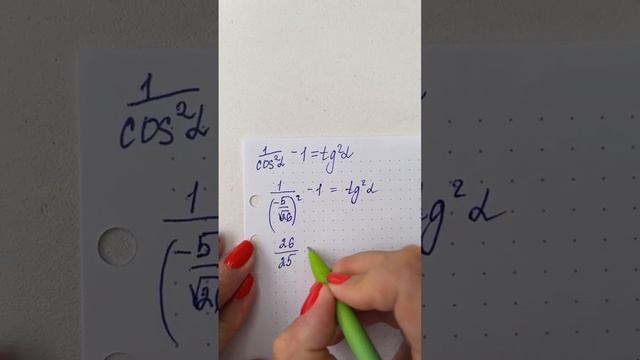 1/cos²α - 1 = tg²α
1/(-5/√26)² - 1 = tg²α
26/25